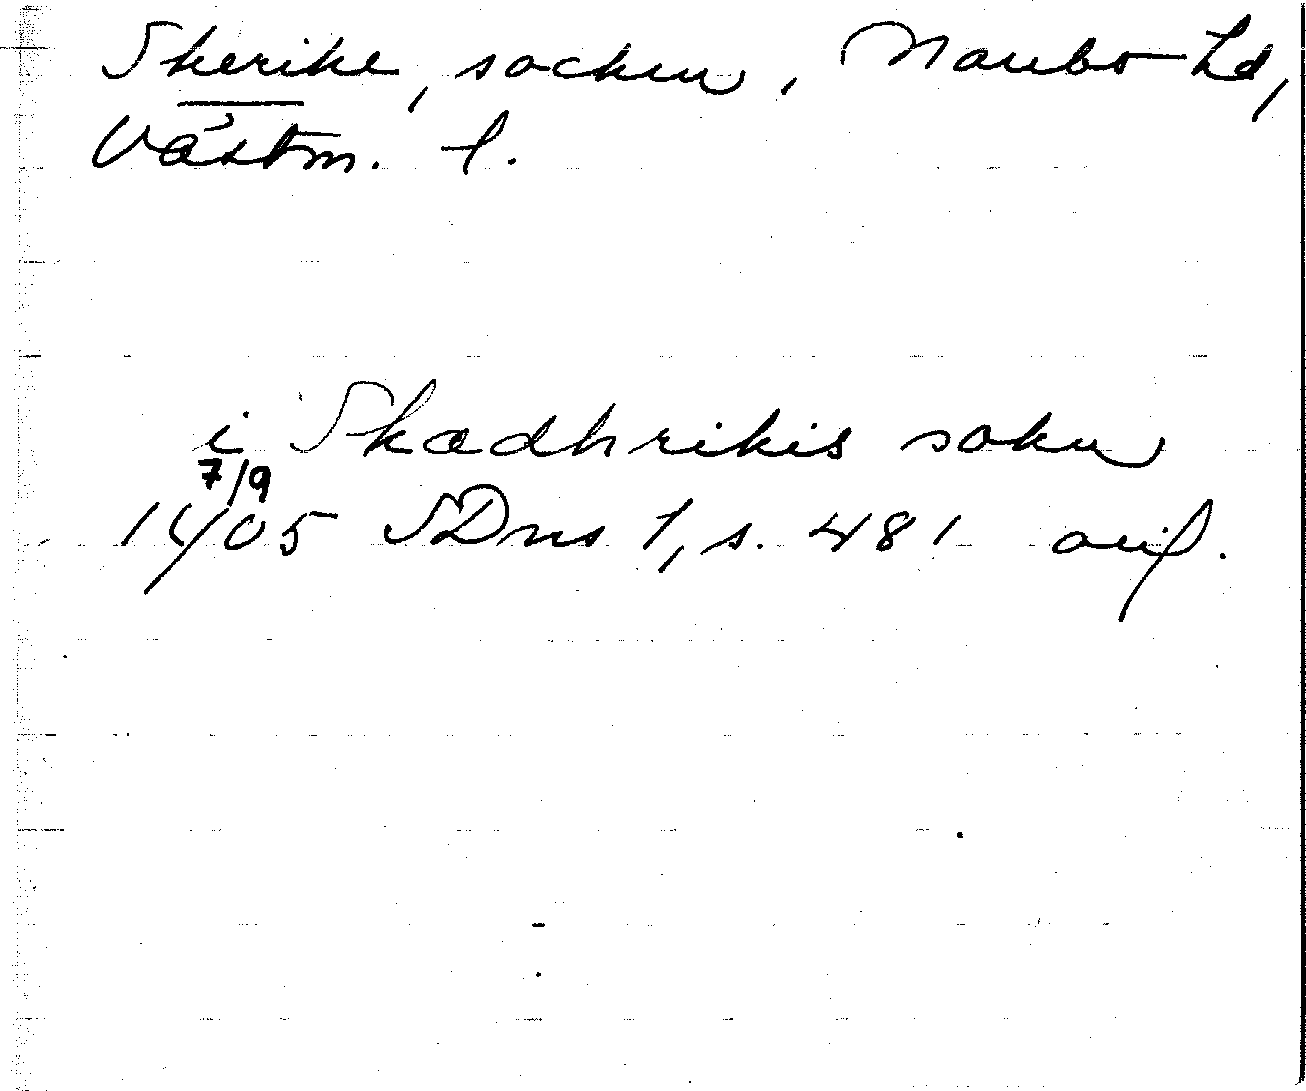 Skerike, socken, Norrbo hd,
Västm. l.
i Skædhrikis sokn
7/9
1405 SDns 1, s. 481 orig.